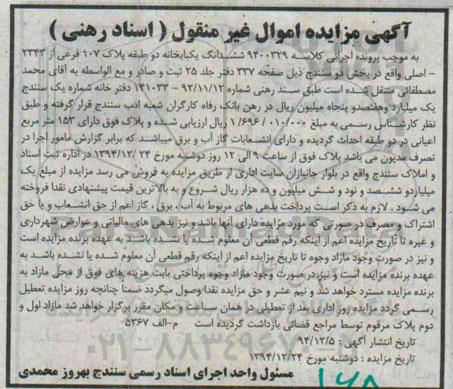 آگهی مزایده اموال غیر منقول ( اسناد رهنی )
به موجب پرونده اجرائی کلاسه ۹۴۰۰۳۲۹ ششدانگ یکبابخانه دو طبقه پلاک ۱۰۷ فرعی از ۲۳۴۳
- اصلی واقع در بخش دو سنندج ذیل صفحه ۳۳۷ دفتر جلد ۲۵ ثبت و صادر و مع الواسطه به آقای محمد
مصطفائی منتقل شده است طبق سند رهنی شماره ۹۲/۱۱/۱۲ - ۱۴۱۰۳۳ دفتر خانه شماره یک سنندج
یک میلیارد وهفتصدو پنجاه میلیون ریال در رهن بانک رفاه کارگران شعبه ادب سنندج قرار گرفته و طبق
نظر کارشناس رسمی به مبلغ ۱/۶۹۶/۰۱۰/۰۰۰ ریال ارزیابی شده و پلاک فوق دارای ۱۵۳ متر مربع
اعیانی در دو طبقه احداث گردیده و دارای انشعابات گاز آب و برق میباشد که برابر گزارش مامور اجرا در
تصرف مدیون می باشد پلاک فوق از ساعت ۹ الی ۱۲ روز دوشنبه مورخ ۱۳۹۴/۱۲/۲۴ در اداره ثبت اسناد
و املاک سنندج واقع در بلوار جانبازان سایت اداری از طریق مزایده به فروش می رسد مزایده از مبلغ یک
میلیاردو ششصد و نود و شش میلیون و ده هزار ریال شروع و به بالاترین قیمت پیشنهادی نقدا فروخته
می شود . لازم به ذکر است پرداخت بدهی های مربوط به آب ، برق ، گاز اعم از حق انشعاب و یا حق
اشتراک و مصرف در صورتی که مورد مزایده دارای آنها باشد و نیز بدهی های مالیاتی و عوارض شهرداری
و غیره تا تاریخ مزایده اعم از اینکه رقم قطعی آن معلوم شده یا نشده باشد به عهده برنده مزایده است
و نیز در صورت وجود مازاد وجوه تا تاریخ مزایده اعم از اینکه رقم قطعی آن معلوم شده یا نشده باشد به
عهده برنده مزایده است و نیز در صورت وجود مازاد وجوه پرداختی بابت هزینه های فوق از محل مازاد به
برنده مزایده مسترد خواهد شد و نیم عشر و حق مزایده نقدا وصول میگردد ضمناً چنانچه روز مزایده تعطیل
رسمی گردد مزایده روز اداری بعد از تعطیلی در همان ساعت و مکان مقرر برگزار خواهد شد مازاد اول و
دوم پلاک مرقوم توسط مراجع قضائی بازداشت گردیده است     م-الف ۵۳۶۷
تاریخ انتشار آگهی : ۹۴/۱۲/۵
تاریخ مزایده : دوشنبه مورخ ۱۳۹۴/۱۲/۲۴
مسئول واحد اجرای اسناد رسمی سنندج بهروز محمدی
۱۶۸